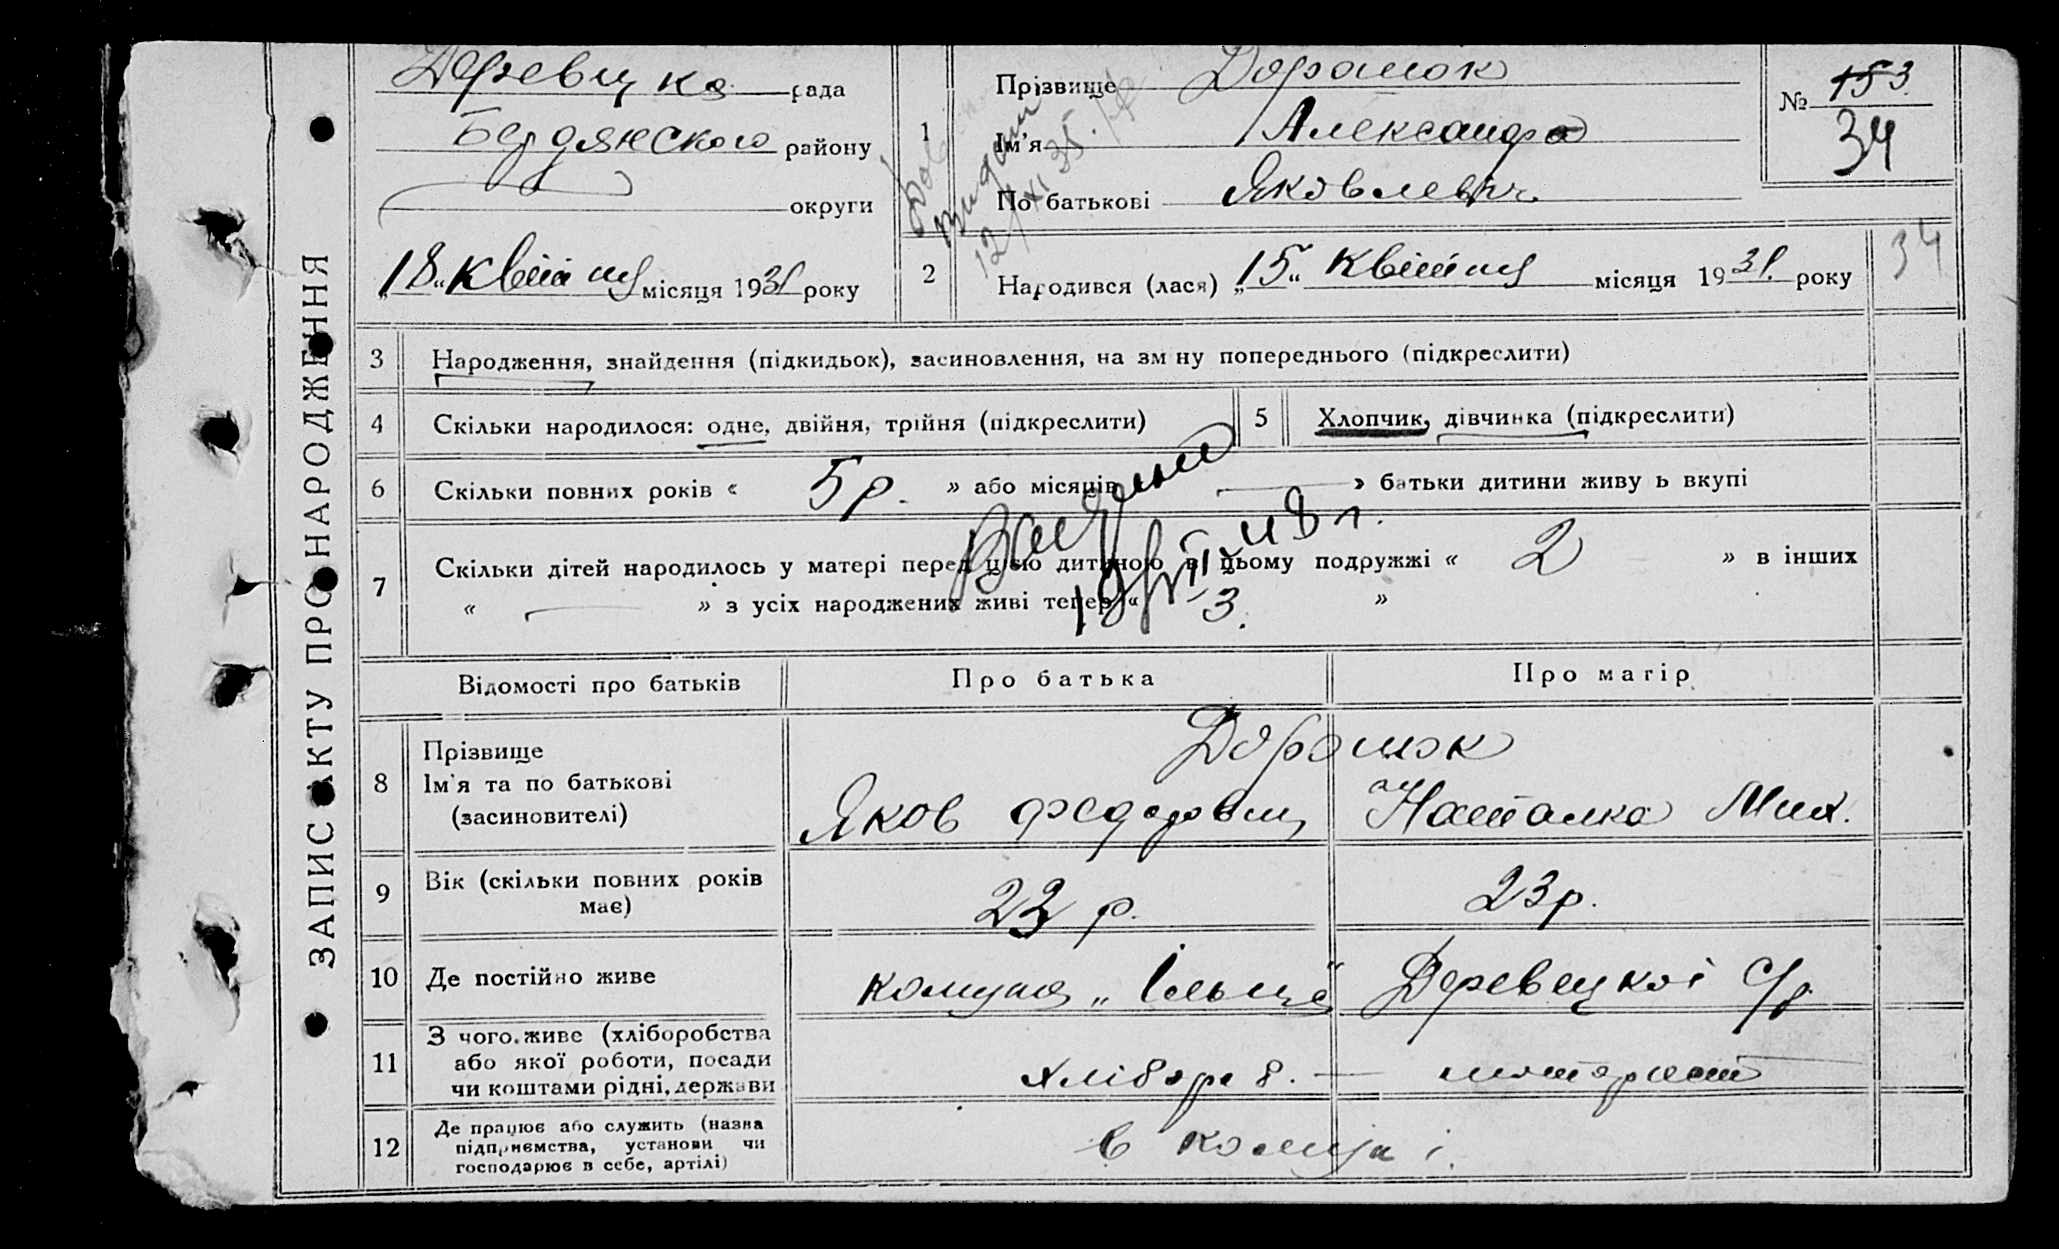 ЗАПИС АКТУ ПРО НАРОДЖЕННЯ
Деревецка рада
Бердянского району
округи
„18“ квітня місяця 1931 року
1
Прізвище Дорошок
Ім'я Александр
По батькові Яковлевич
№ 153
34
12/XI 35.
2
Народився (лася) „15“ квітня місяця 1931. року
34
3 Народження, знайдення (підкидьок), засиновлення, на зм ну попереднього (підкреслити)
4 Скільки народилося: одне, двійня, трійня (підкреслити)
5 Хлопчик, дівчинка (підкреслити)
6 Скільки повних років « 5 р. » або місяців — » батьки дитини живу ь вкупі
7 Скільки дітей народилось у матері перед цією дитиною в цьому подружжі « 2 » в інших
« — » з усіх народжених живі тепер « 3. »
48 г.
Відомості про батьків
Про батька
Про матір
8
Прізвище
Ім'я та по батькові
(засиновителі)
Дорошок
Яков Федорович
Наталка Мих.
9
Вік (скільки повних років
має)
22 р.
23 р.
10 Де постійно живе
комуна „
Деревецкої с/р.
11
З чого живе (хліборобства
або якої роботи, посади
чи коштами рідні, держави
хлібороб. —
12
Де працює або служить (назва
підприємства, установи чи
господарює в себе, артілі)
в комуні.